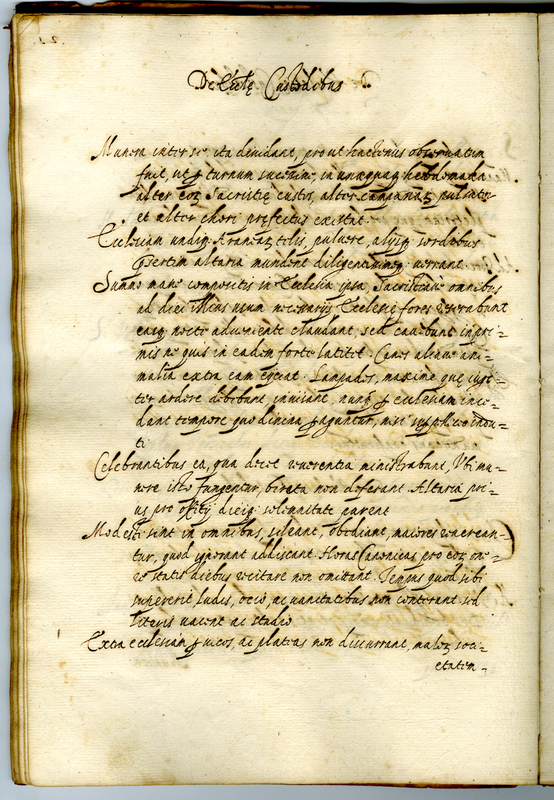 De Eccl̃ę Custodibus
Munera inter se ita diuidant, prout hactenus obseruatum
fuit, ut ꝑ turnum succesiue in unaquaq; hebdomada
alter eoꝝ Sacristię custos, alter campanaꝝ pulsator
et alter chori pręfectus existat.
Ecclesiam undiq; Aranaeaꝝ telis, puluere, alijsq; sordibus
p̃sertim altaria mundent diligentissimeq; uerrant.
Summo mane compositis in Ecclesia ipsa, Sacristiaue omnibus
ad diei illius usum necessarijs Ecclesię fores reserabunt
easq; nocte adueniente claudant, sed cauebunt inpri=
mis ne quis in eadem forte latitet. Canes aliaue ani=
malia extra eam eijciant. Lampades, maxime quę iugi=
ter ardere debebunt, inuisant, nunq̃ ꝑ ecclesiam ince=
dant tempore quo diuina ꝑaguntur, nisi suppelliceo indu=
ti.
Celebrantibus ea, qua decet reuerentia ministrabunt, Vbi mu=
nere isto fungentur, bireta non deferant. Altaria pri=
us pro officij dieiq; solemnitate parent
Modesti sint in omnibus, sileant, obediant, maiores uenerean=
tur, quod ignorant addiscant. Horas Canonicas pro eoꝝ on=
re statis diebus recitare non omittant. Tempus quod sibi
supererit ludis, ocio, ac uanitatibus non conterant sed
literis uacent ac studio
Extra ecclesiam ꝑ uicos, ac plateas non discurrant, maloꝝ soci=
etatem